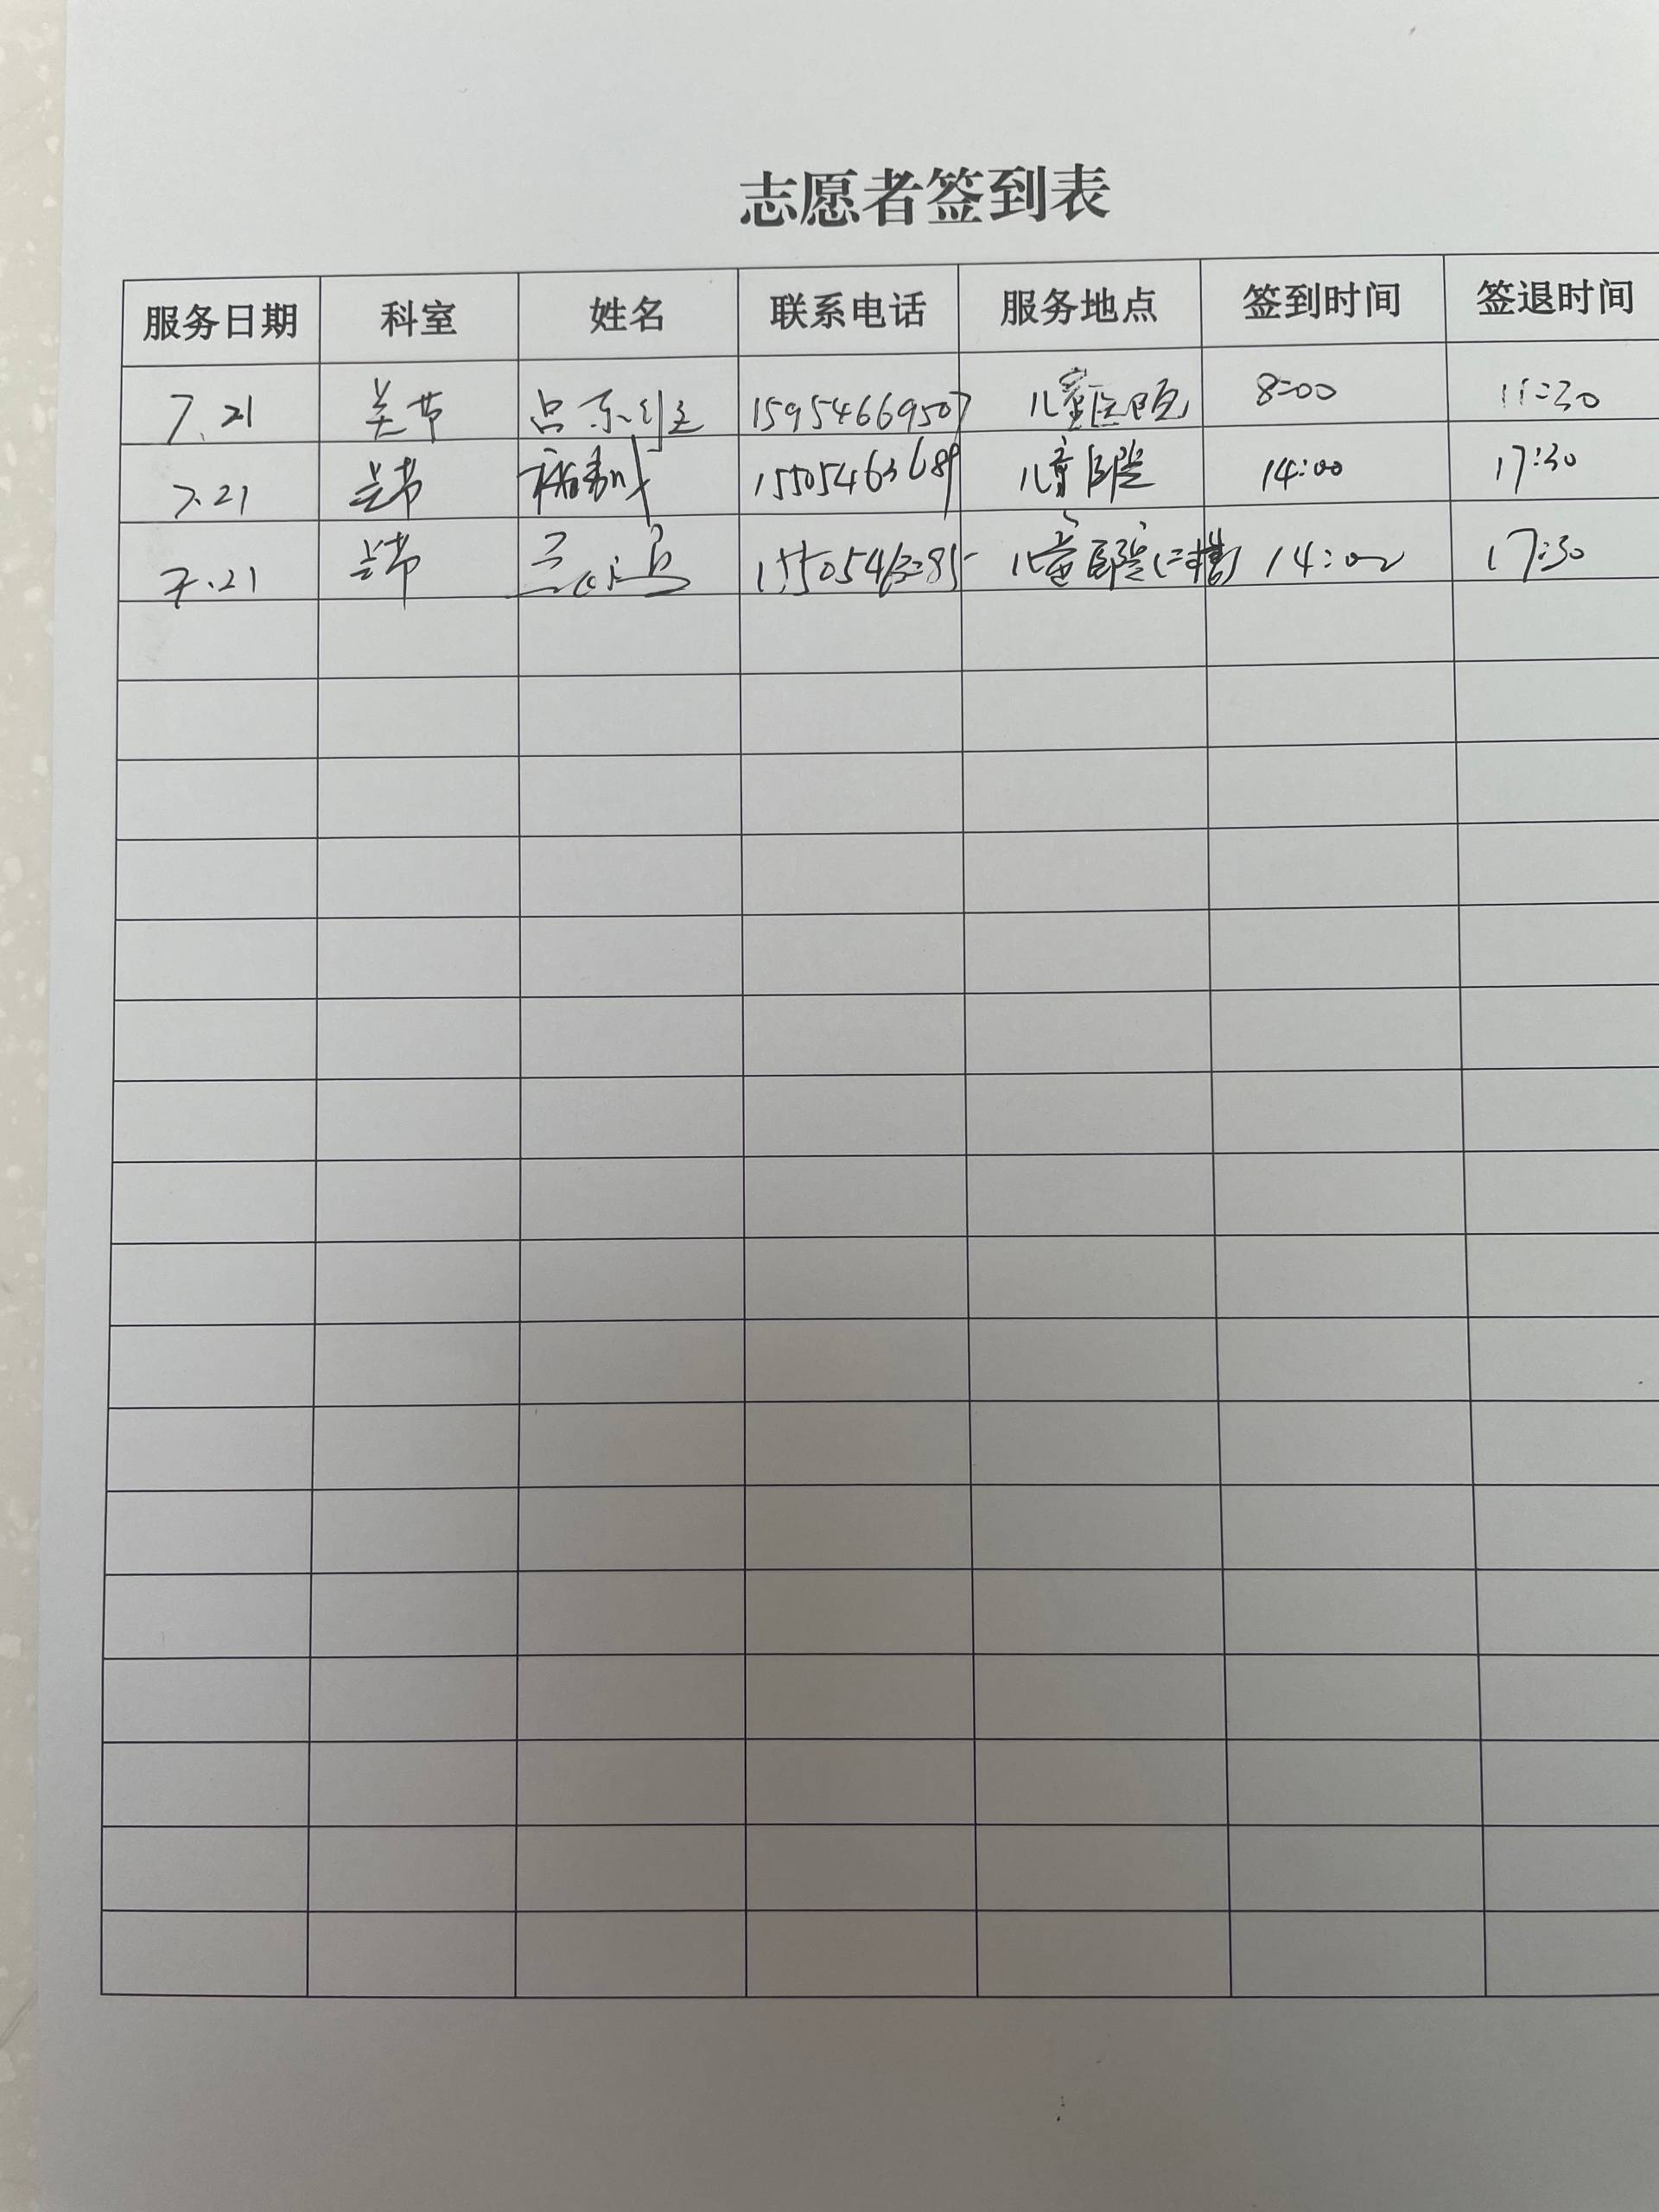 志愿者签到表
服务日期 科室 姓名 联系电话 服务地点 签到时间 签退时间
7.21 关节 15954669507 儿童医院 8:00 11:30
7.21 关节 15505463689 儿童医院 14:00 17:30
7.21 关节 儿童医院(二楼) 14:00 17:30